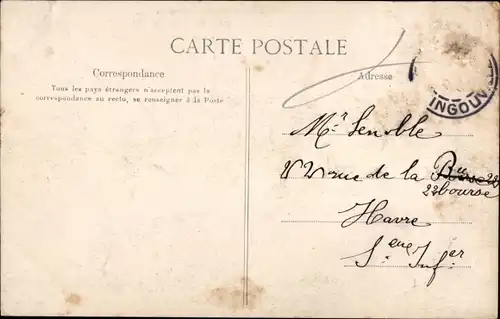 CARTE POSTALE
Correspondance
Tous les pays étrangers n'acceptent pas la
correspondance au recto, se renseigner à la Poste
Adresse
INGOUV
Mr Lenoble
rue de la
22 bourse
Havre
Sne Infer